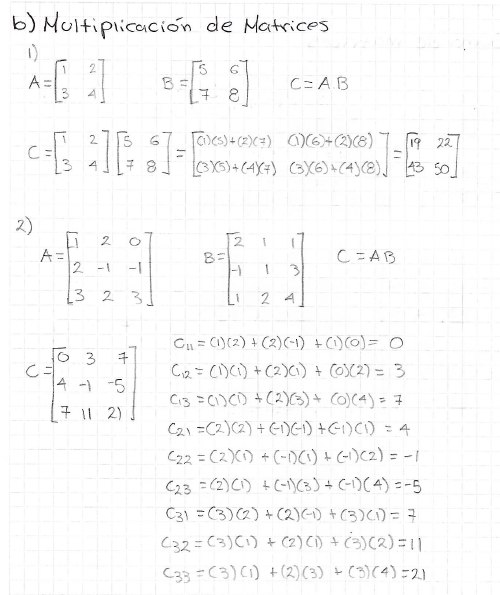 b) Multiplicación de Matrices
1)
A = [1 2; 3 4] B = [5 6; 7 8] C = AB
C = [1 2; 3 4] [5 6; 7 8] = [(1)(5)+(2)(7) (1)(6)+(2)(8); (3)(5)+(4)(7) (3)(6)+(4)(8)] = [19 22; 43 50]
2)
A = [1 2 0; 2 -1 -1; 3 2 3] B = [2 1 1; -1 1 3; 1 2 4] C = AB
C = [0 3 7; 4 -1 -5; 7 11 21]
C11 = (1)(2) + (2)(-1) + (1)(0) = 0
C12 = (1)(1) + (2)(1) + (0)(2) = 3
C13 = (1)(1) + (2)(3) + (0)(4) = 7
C21 = (2)(2) + (-1)(-1) + (-1)(1) = 4
C22 = (2)(1) + (-1)(1) + (-1)(2) = -1
C23 = (2)(1) + (-1)(3) + (-1)(4) = -5
C31 = (3)(2) + (2)(-1) + (3)(1) = 7
C32 = (3)(1) + (2)(1) + (3)(2) = 11
C33 = (3)(1) + (2)(3) + (3)(4) = 21